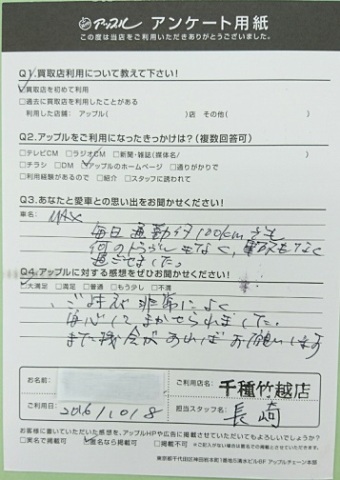 アップル アンケート用紙
この度は当店をご利用いただきありがとうございました。
Q1.買取店利用について教えて下さい!
☑買取店を初めて利用
□過去に買取店を利用したことがある
利用した店舗: アップル( )店 その他( )
Q2.アップルをご利用になったきっかけは?(複数回答可)
□テレビCM □ラジオCM □新聞・雑誌(媒体名/ )
□チラシ □DM ☑アップルのホームページ □通りがかりで
□利用経験があるので □紹介 □スタッフに誘われて
Q3.あなたと愛車との思い出をお聞かせください!
車名: MAX
毎日通勤で 100km
何のトラブルもなく、事故もなく
過ごせました。
Q4.アップルに対する感想をぜひお聞かせください!
☑大満足 □満足 □普通 □もう少し □不満
ご対応 非常によく
安心して まかせられました。
また機会があれば お願いします
お名前
ご利用店名: 千種竹越店
ご利用日 2016/10/8
担当スタッフ名: 長崎
お客様に書いていただいた感想を、アップルHPや広告に掲載させていただいてもよろしいでしょうか?
□実名で掲載可 ☑匿名なら掲載可 □掲載不可 ※ご記入がない場合は匿名での掲載とさせていただきます。
東京都千代田区神田松本町1番地SIA神田スクエア